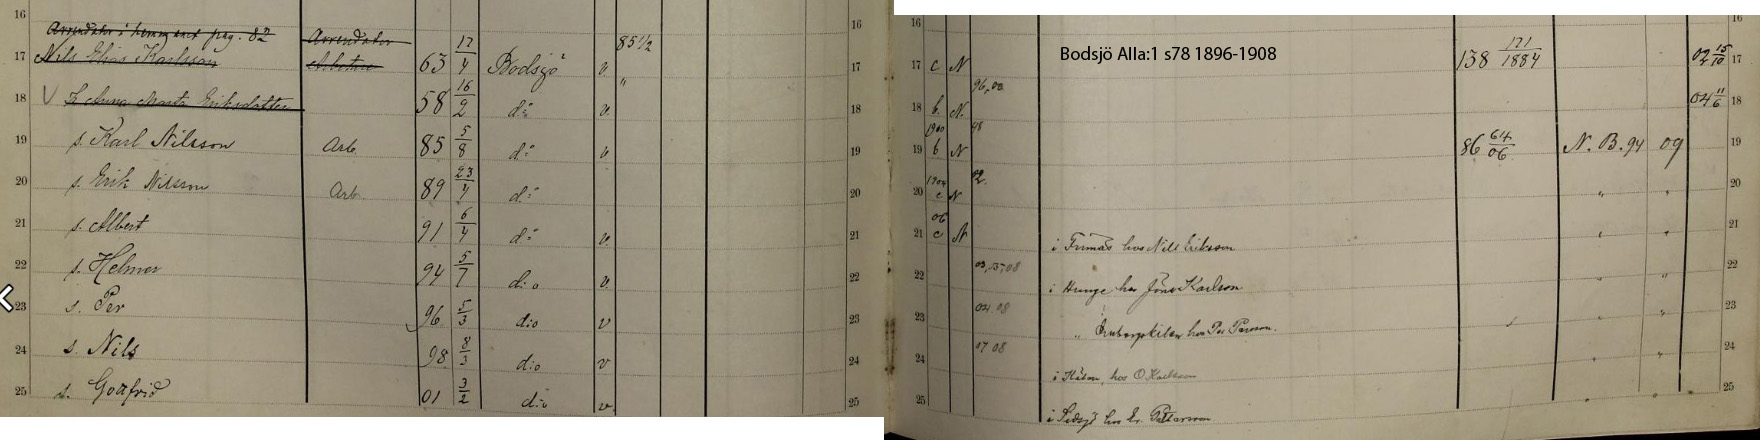 16 16 16 16
Arrendator i hemmanet pag. 82 Arrendator 85 1/2
17 Nils Elias Karlsson Arbetare 63 17/4 Bodsjö v. 17 17 c N Bodsjö Alla:1 s78 1896-1908 138 121/1884 02 15/10 17
18 V H. Anna Marta Eriksdotter 58 16/2 d:o v. " 18 18 b. N. 96,00. 04 11/6 18
19 s. Karl Nilsson Arb. 85 5/8 d:o v 19 19 1900 b N 48 86 64/06 N. B. 94 09 19
20 s. Erik Nilsson Arb. 89 23/4 d:o 20 20 1904 c N 02. " " 20
21 s. Albert 91 6/4 d:o v. 21 21 06 c N i hos Nils Eriksson " " 21
22 s. Helmer 94 5/7 d:o v. 22 22 03, 05, 08 i Hunge hos Jöns Karlson " " 22
23 s. Per 96 5/3 d:o v 23 23 04. 08 " hos Per Persson. " " 23
24 s. Nils 98. 8/3 d:o v 24 24 07 08 i hos O Karlsson " " 24
25 s. Gottfrid 01 3/2 d:o v 25 25 i hos Er. " " 25